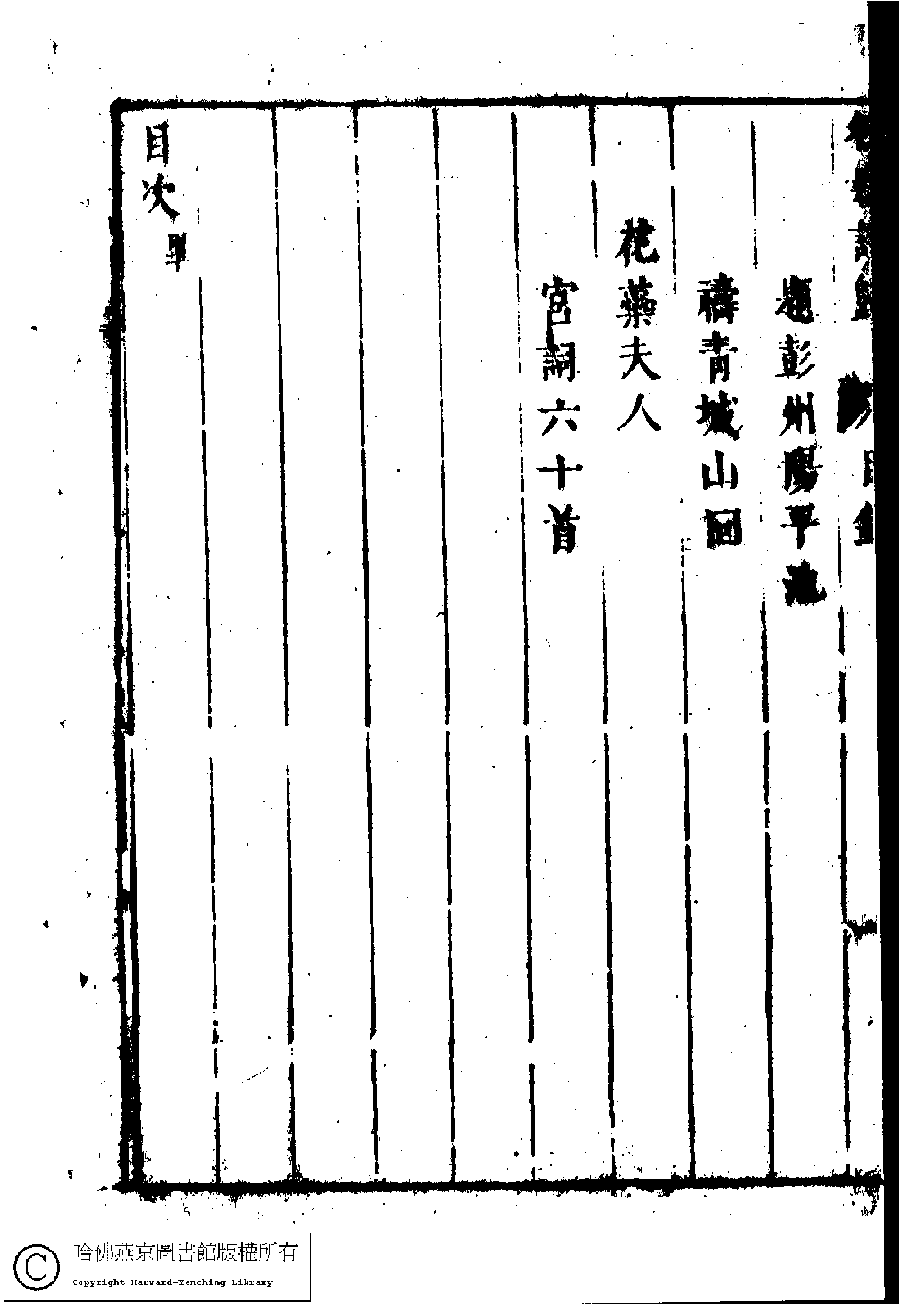 題彭州陽平池
禱青城山回
花蘂夫人
宮詞六十首
目次畢
哈佛燕京圖書館版權所有
Copyright Harvard-Yenching Library